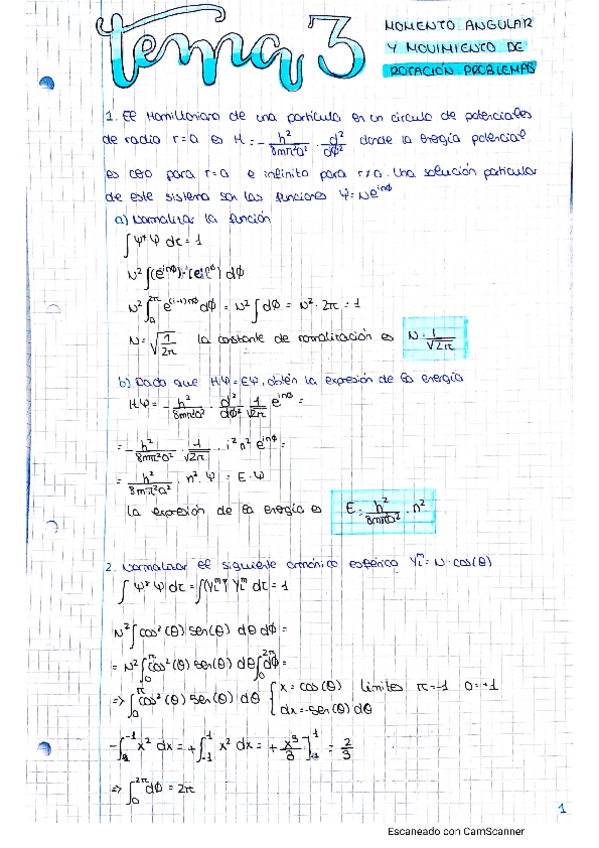 tema 3
MOMENTO ANGULAR
Y MOVIMIENTO DE
ROTACIÓN. PROBLEMAS
1. El Hamiltoniano de una partícula en un círculo de potenciales
de radio r=a es H = - h²/8mπ²a² · d²/dϕ² donde la energía potencial
es cero para r=a e infinito para r≠a. Una solución particular
de este sistema son las funciones Ψ=Ne^inϕ
a) Normalizar la función
∫Ψ*Ψ dτ = 1
N² ∫₀^2π e^(i-i)nϕ dϕ = N² ∫dϕ = N² · 2π = 1
N = √(1/2π) la constante de normalización es N = 1/√2π
b) Dado que HΨ=EΨ, obtén la expresión de la energía
HΨ = - h²/8mπ²a² · d²/dϕ² 1/√2π e^inϕ =
= - h²/8mπ²a² · 1/√2π · i²n² e^inϕ =
= h²/8mπ²a² · n² · Ψ = E·Ψ
La expresión de la energía es E = h²/8mπ²a² · n²
2. Normalizar el siguiente armónico esférico Yₗᵐ = N · cos(θ)
∫Ψ*Ψ dτ = ∫(Yₗᵐ)* Yₗᵐ dτ = 1
N² ∫cos²(θ) sen(θ) dθ dϕ =
= N² ∫₀^π cos²(θ) sen(θ) dθ ∫₀^2π dϕ =
=> ∫₀^π cos²(θ) sen(θ) dθ { x = cos(θ) límites π=-1 0=+1
dx = -sen(θ) dθ
-∫₁^-1 x² dx = +∫₋₁^1 x² dx = + x³/3 ]₋₁^1 = 2/3
=> ∫₀^2π dϕ = 2π
1
Escaneado con CamScanner